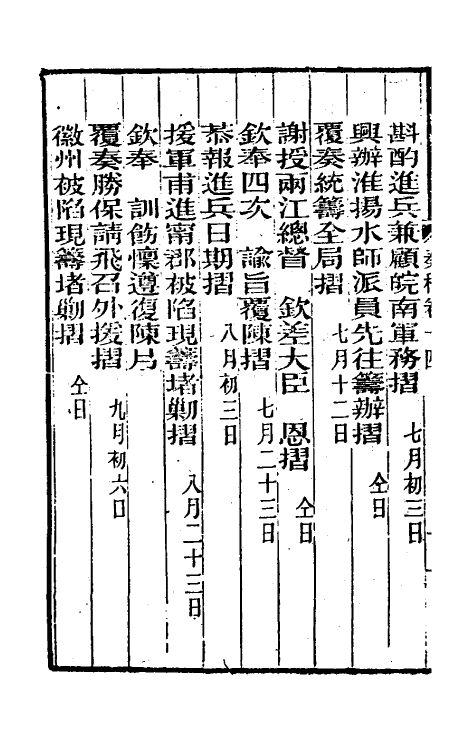 斟酌進兵兼顧皖南軍務摺　七月初三日
興辦淮揚水師派員先往籌辦摺　仝日
覆奏統籌全局摺　七月十二日
謝授兩江總督　欽差大臣　恩摺　仝日
欽奉四次　諭旨覆陳摺　七月二十三日
恭報進兵日期摺　八月初三日
援軍甫進甯郡被陷現籌堵勦摺　八月二十三日
欽奉　訓飭懍遵復陳片
覆奏勝保請飛召外援摺　九月初六日
徽州被陷現籌堵勦摺　仝日